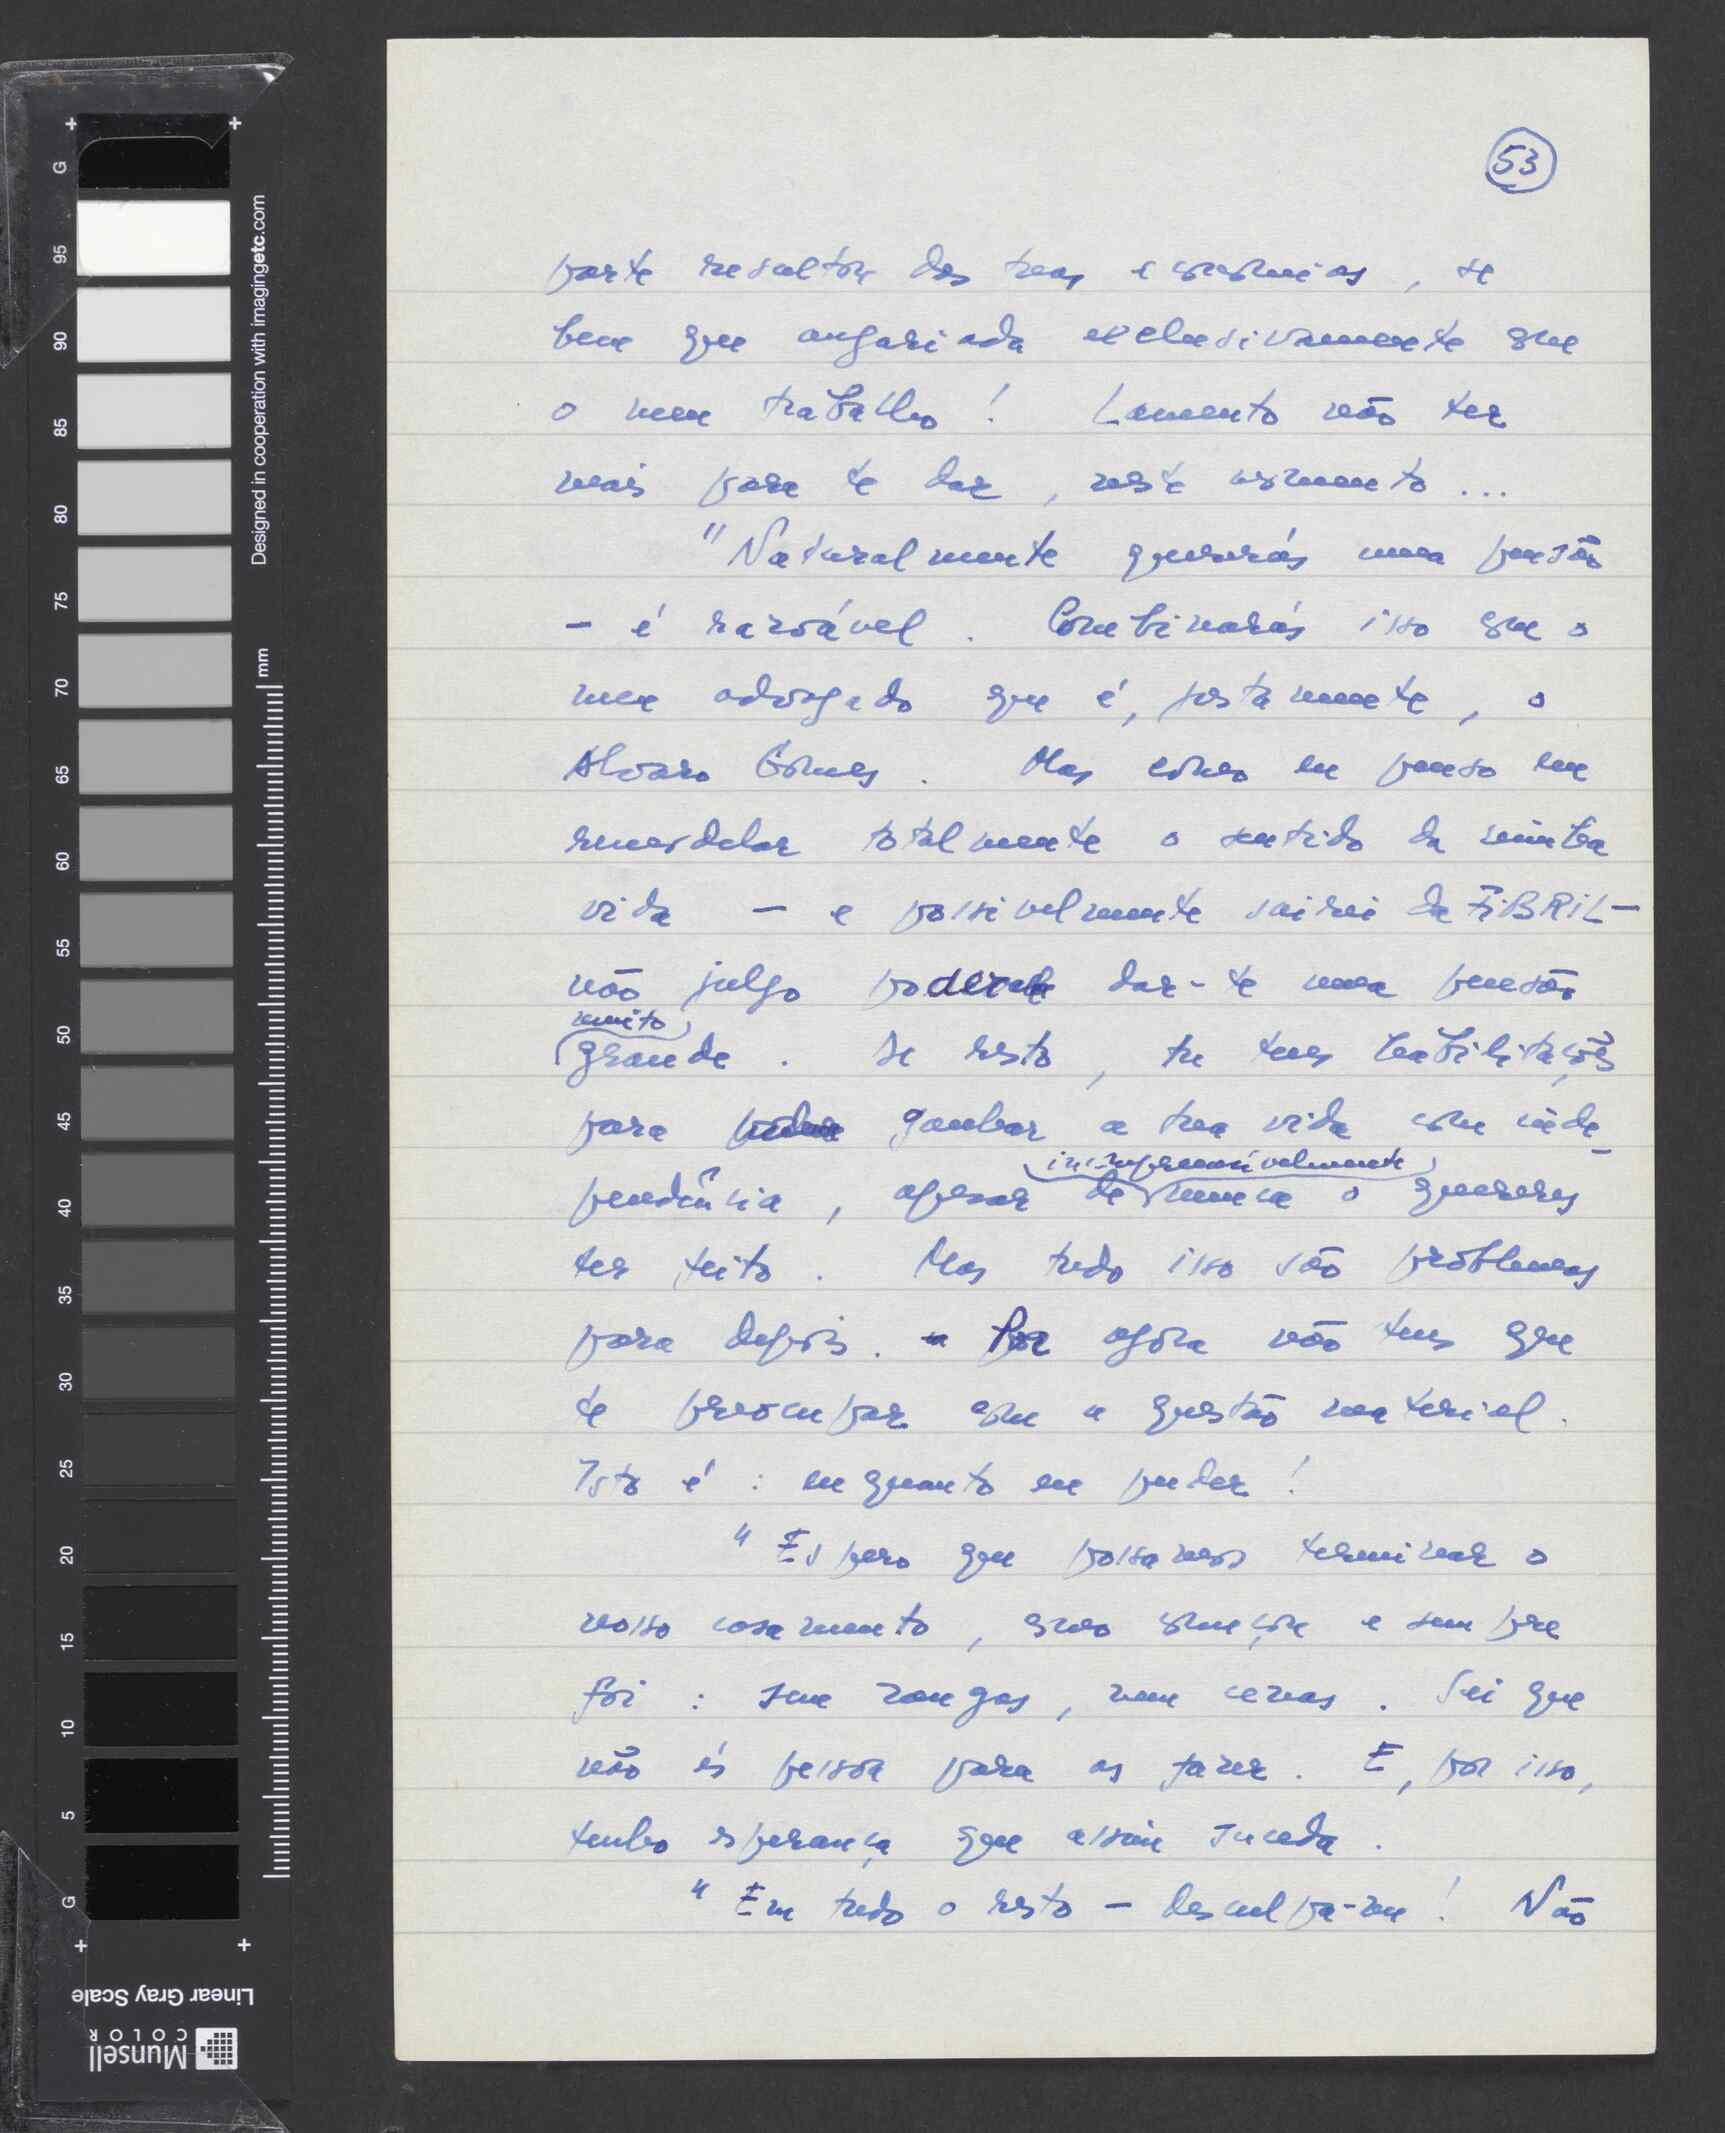 53
parte resultou das tuas economias, se
bem que angariada exclusivamente com
o meu trabalho! Lamento não ter
mais para te dar, neste momento...
"Naturalmente quererás uma pensão
- é razoável. Combinarás isso com o
meu advogado que é, justamente, o
Alvaro Gomes. Mas como eu penso em
remodelar totalmente o sentido da minha
vida - e possivelmente sairei da FIBRIL -
não julgo poder dar-te uma pensão
muito
grande. De resto, tu tens habilitações
para poder ganhar a tua vida com inde-
incompreensivelmente
pendência, apesar de nunca o quereres
ter feito. Mas tudo isso são problemas
para depois. Por agora não tens que
te preocupar com a questão material.
Isto é: enquanto eu puder!
"Espero que possamos terminar o
nosso casamento, como começou e sempre
foi: sem zangas, nem cenas. Sei que
não és pessoa para as fazer. E, por isso,
tenho esperança que assim suceda.
"Em tudo o resto - desculpa-me! Não
Designed in cooperation with imagingetc.com
mm
G
95
90
85
80
75
70
65
60
55
50
45
40
35
30
25
20
15
10
5
G
Linear Gray Scale
Munsell
COLOR